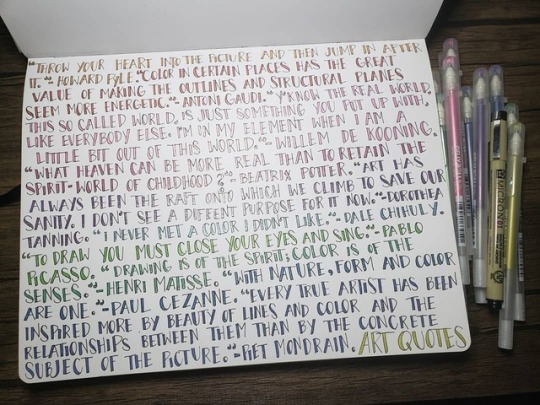 "THROW YOUR HEART INTO THE PICTURE AND THEN JUMP IN AFTER
IT." - HOWARD PYLE. "COLOR IN CERTAIN PLACES HAS THE GREAT
VALUE OF MAKING THE OUTLINES AND STRUCTURAL PLANES
SEEM MORE ENERGETIC." - ANTONI GAUDI. "Y'KNOW THE REAL WORLD,
THIS SO CALLED WORLD, IS JUST SOMETHING YOU PUT UP WITH,
LIKE EVERYBODY ELSE. I'M IN MY ELEMENT WHEN I AM A
LITTLE BIT OUT OF THIS WORLD." - WILLEM DE KOONING.
"WHAT HEAVEN CAN BE MORE REAL THAN TO RETAIN THE
SPIRIT-WORLD OF CHILDHOOD?" - BEATRIX POTTER. "ART HAS
ALWAYS BEEN THE RAFT ONTO WHICH WE CLIMB TO SAVE OUR
SANITY. I DON'T SEE A DIFFENT PURPOSE FOR IT NOW." - DOROTHEA
TANNING. "I NEVER MET A COLOR I DIDN'T LIKE." - DALE CHIHULY.
"TO DRAW YOU MUST CLOSE YOUR EYES AND SING." - PABLO
PICASSO. "DRAWING IS OF THE SPIRIT; COLOR IS OF THE
SENSES." - HENRI MATISSE. "WITH NATURE, FORM AND COLOR
ARE ONE." - PAUL CEZANNE. "EVERY TRUE ARTIST HAS BEEN
INSPIRED MORE BY BEAUTY OF LINES AND COLOR AND THE
RELATIONSHIPS BETWEEN THEM THAN BY THE CONCRETE
SUBJECT OF THE PICTURE." - PIET MONDRAIN. ART QUOTES
MICRON